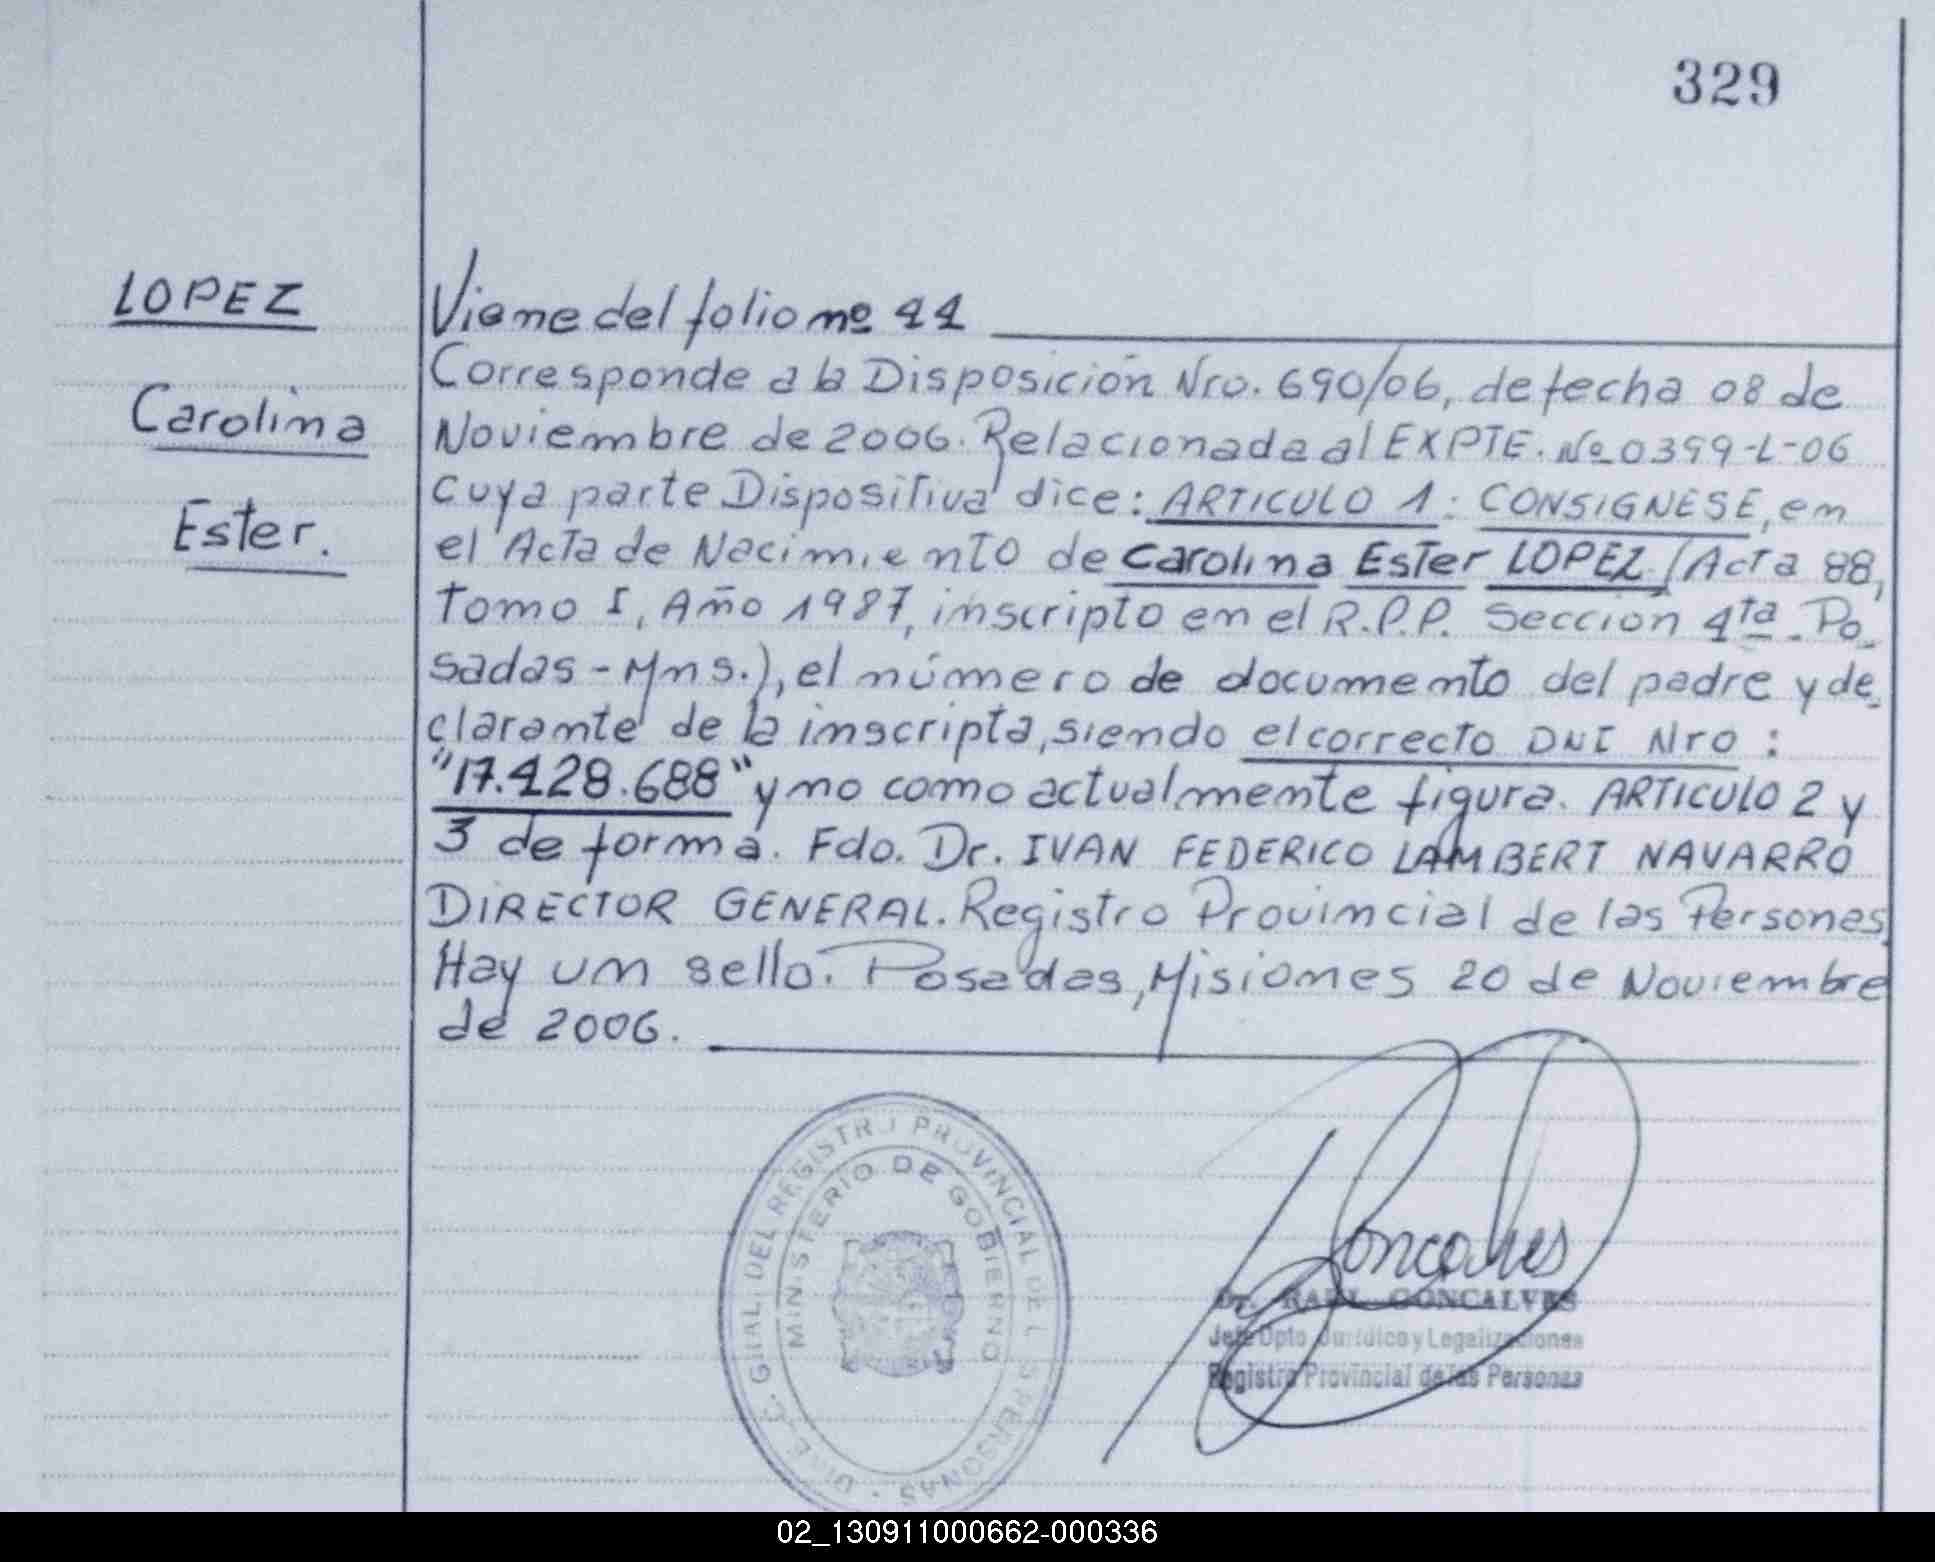 329
LOPEZ
Carolina
Ester.
Viene del folio nº 44
Corresponde a la Disposición Nro. 690/06, de fecha 08 de
Noviembre de 2006. Relacionada al EXPTE. Nº 0399-L-06
cuya parte Dispositiva dice: ARTICULO 1: CONSIGNESE, en
el Acta de Nacimiento de Carolina Ester LOPEZ (Acta 88,
tomo I, Año 1987, inscripto en el R.P.P. Sección 4ta - Po-
sadas - Mns.), el número de documento del padre y de-
clarante de la inscripta, siendo el correcto DNI Nro :
"17.428.688" y no como actualmente figura. ARTICULO 2 y
3 de forma. Fdo. Dr. IVAN FEDERICO LAMBERT NAVARRO
DIRECTOR GENERAL. Registro Provincial de las Personas.
Hay un sello. Posadas, Misiones 20 de Noviembre
de 2006.
GRAL. DEL REGISTRO PROVINCIAL DE L S PERSONAS
MINISTERIO DE GOBIERNO
Goncalves
Dr. RAUL GONCALVES
Jefe Dpto Jurídico y Legalizaciones
Registro Provincial de las Personas
02_130911000662-000336